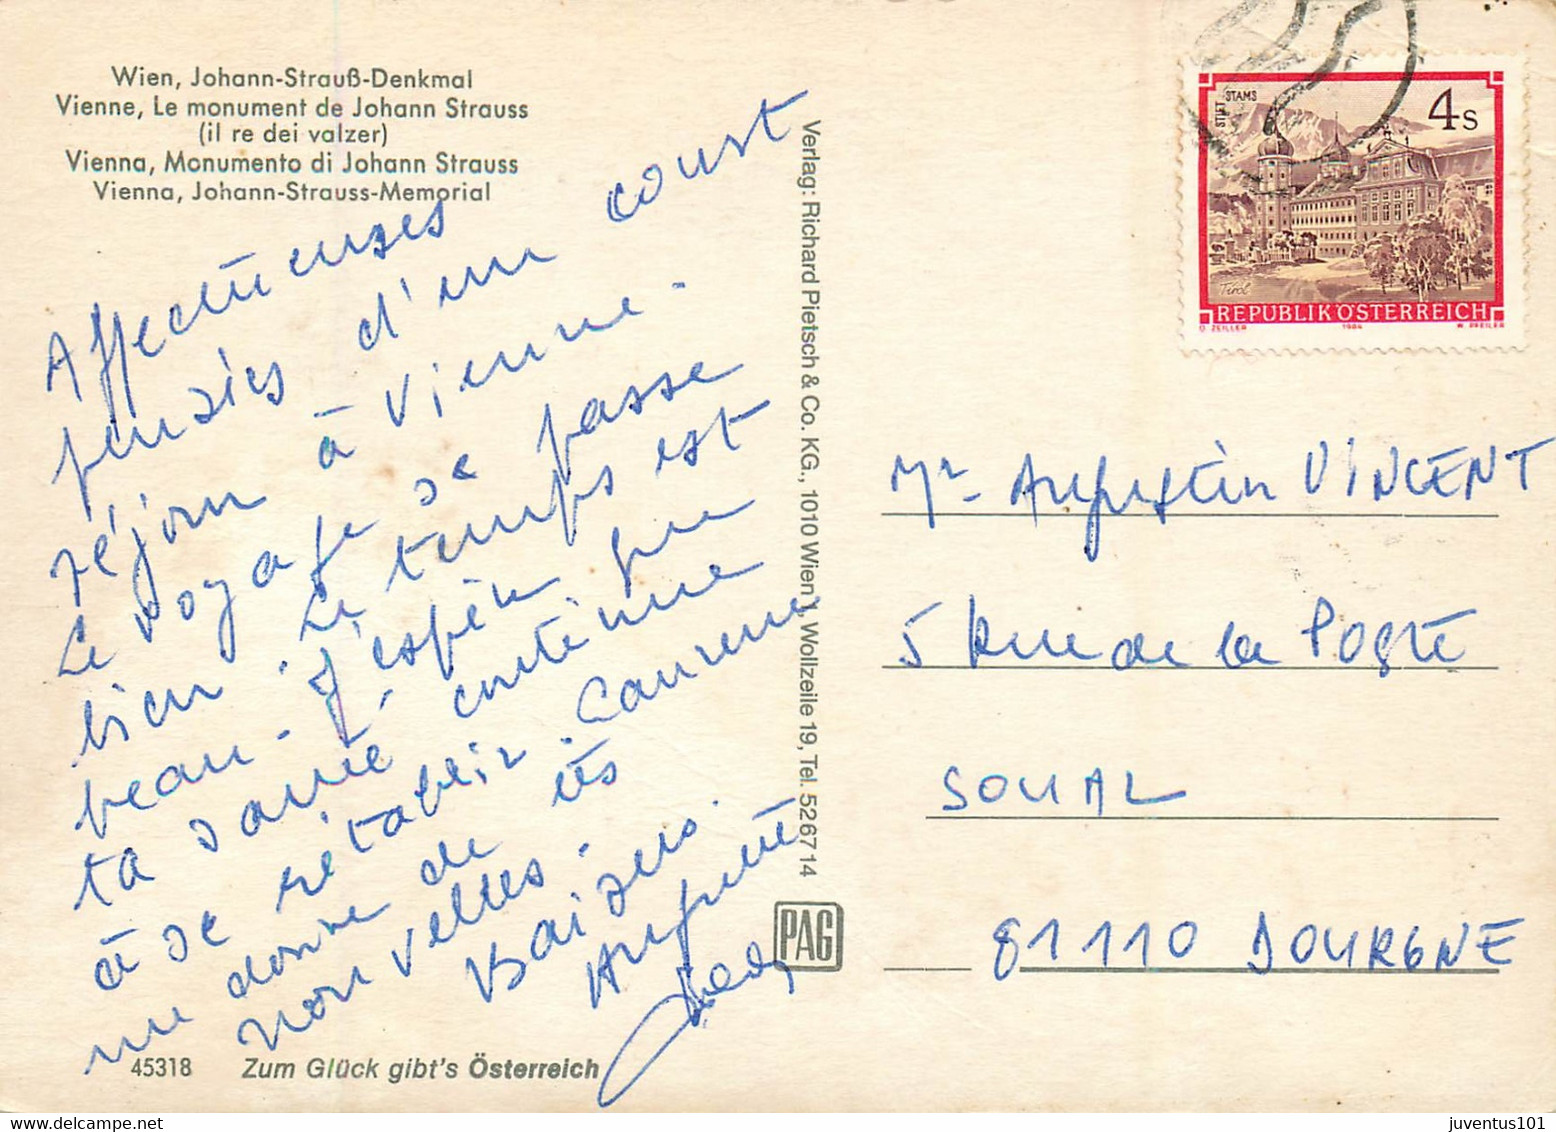 Wien, Johann-Strauß-Denkmal
Vienne, Le monument de Johann Strauss
(il re dei valzer)
Vienna, Monumento di Johann Strauss
Vienna, Johann-Strauss-Memorial
Affectueuses
pensées d'un court
séjour à Vienne.
Le voyage se passe
bien. Le temps est
beau. J'espère que
ta santé continue
à se rétablir. Laurence
me donne de tes
nouvelles.
Baisers.
45318 Zum Glück gibt's Österreich
Verlag: Richard Pietsch & Co. KG., 1010 Wien 1, Wollzeile 19, Tel. 526714
PAG
STIFT STAMS
4 S
Tirol
REPUBLIK ÖSTERREICH
O. ZEILLER 1984 W. PFEILER
Mr Augustin VINCENT
5 Rue de la Poste
SOUAL
81110 DOURGNE
juventus101